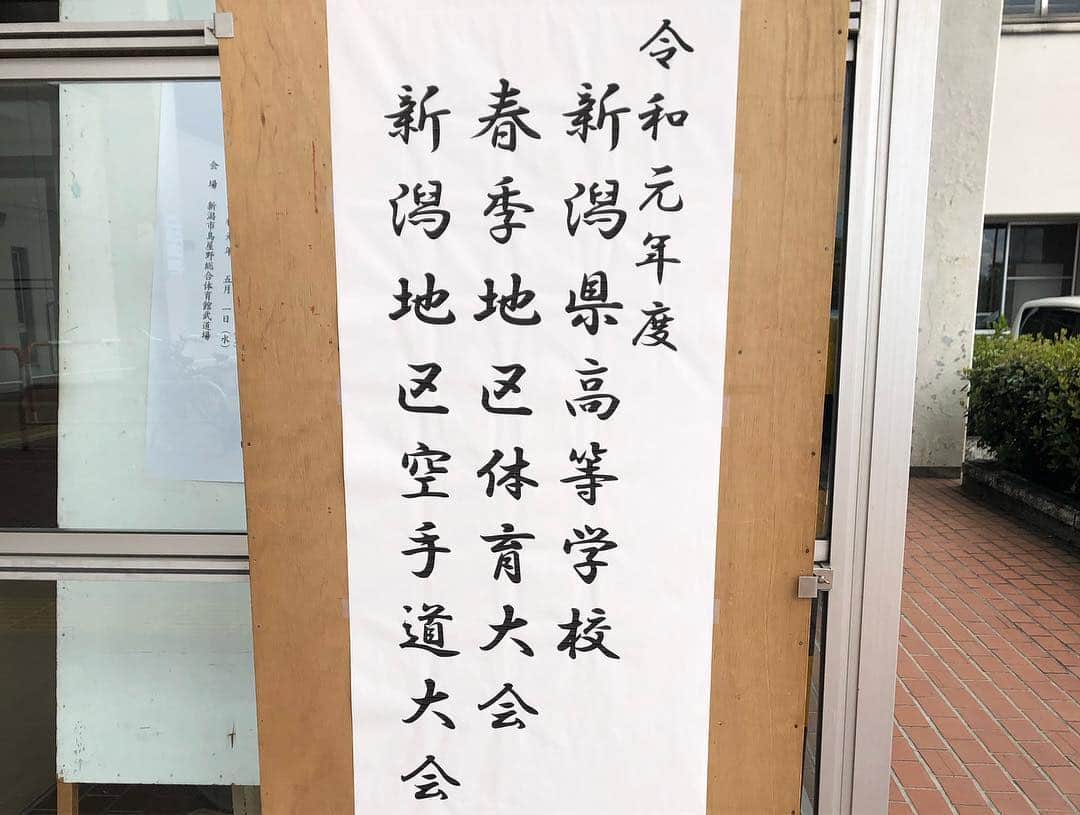 令和元年度
新潟県高等学校
春季地区体育大会
新潟地区空手道大会
五月 一日（水）
会場 新潟市鳥屋野総合体育館武道場